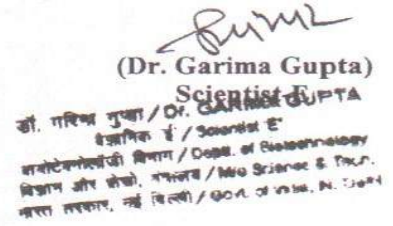 (Dr. Garima Gupta)
Scientist-E
डॉ. गरिमा गुप्ता / Dr. GARIMA GUPTA
वैज्ञानिक ई / Scientist "E"
बायोटेक्नोलॉजी विभाग / Deptt. of Biotechnology
विज्ञान और प्रौ०, मंत्रालय / M/o Science & Tech.
भारत सरकार, नई दिल्ली / Govt. of India, N. Delhi